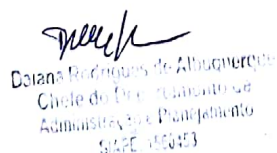 Daiana Rodrigues de Albuquerque
Chefe do Departamento de
Administração e Planejamento
SIAPE